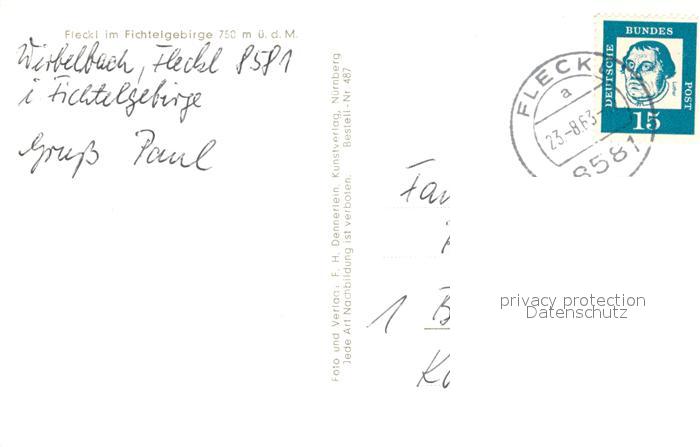 Fleckl im Fichtelgebirge 750 m ü. d. M.
Wirbelbach, Fleckl 8581
i Fichtelgebirge
Gruß Paul
Foto und Verlag: F. H. Dennerlein, Kunstverlag, Nürnberg
Jede Art Nachbildung ist verboten. Bestell-Nr 487
DEUTSCHE
BUNDES
POST
15
FLECK
a
23.-8.63
8581
Fa
1 B
K
privacy protection
Datenschutz